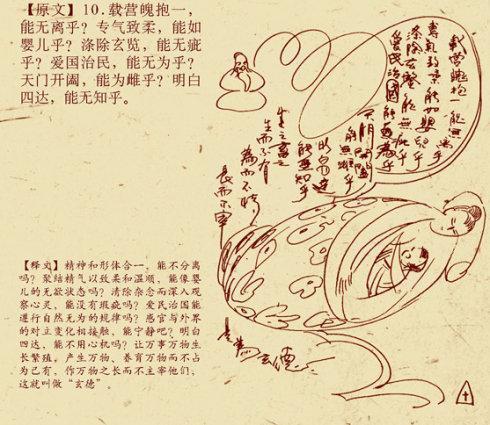 【原文】10.载营魄抱一，
能无离乎？专气致柔，能如
婴儿乎？涤除玄览，能无疵
乎？爱国治民，能无为乎？
天门开阖，能为雌乎？明白
四达，能无知乎。
載營魄抱一能無離乎
專氣致柔能如嬰兒乎
滌除玄覽能無疵乎
愛民治國能無為乎
天門開闔
能無雌乎
明白四達
能無知乎
生之畜之
生而不有
為而不恃
長而不宰
是為玄德
【释文】精神和形体合一，能不分离
吗？聚结精气以致柔和温顺，能像婴
儿的无欲状态吗？清除杂念而深入观
察心灵，能没有瑕疵吗？爱民治国能
遵行自然无为的规律吗？感官与外界
的对立变化相接触，能宁静吧？明白
四达，能不用心机吗？让万事万物生
长繁殖，产生万物、养育万物而不占
为己有，作万物之长而不主宰他们，
这就叫做“玄德”。